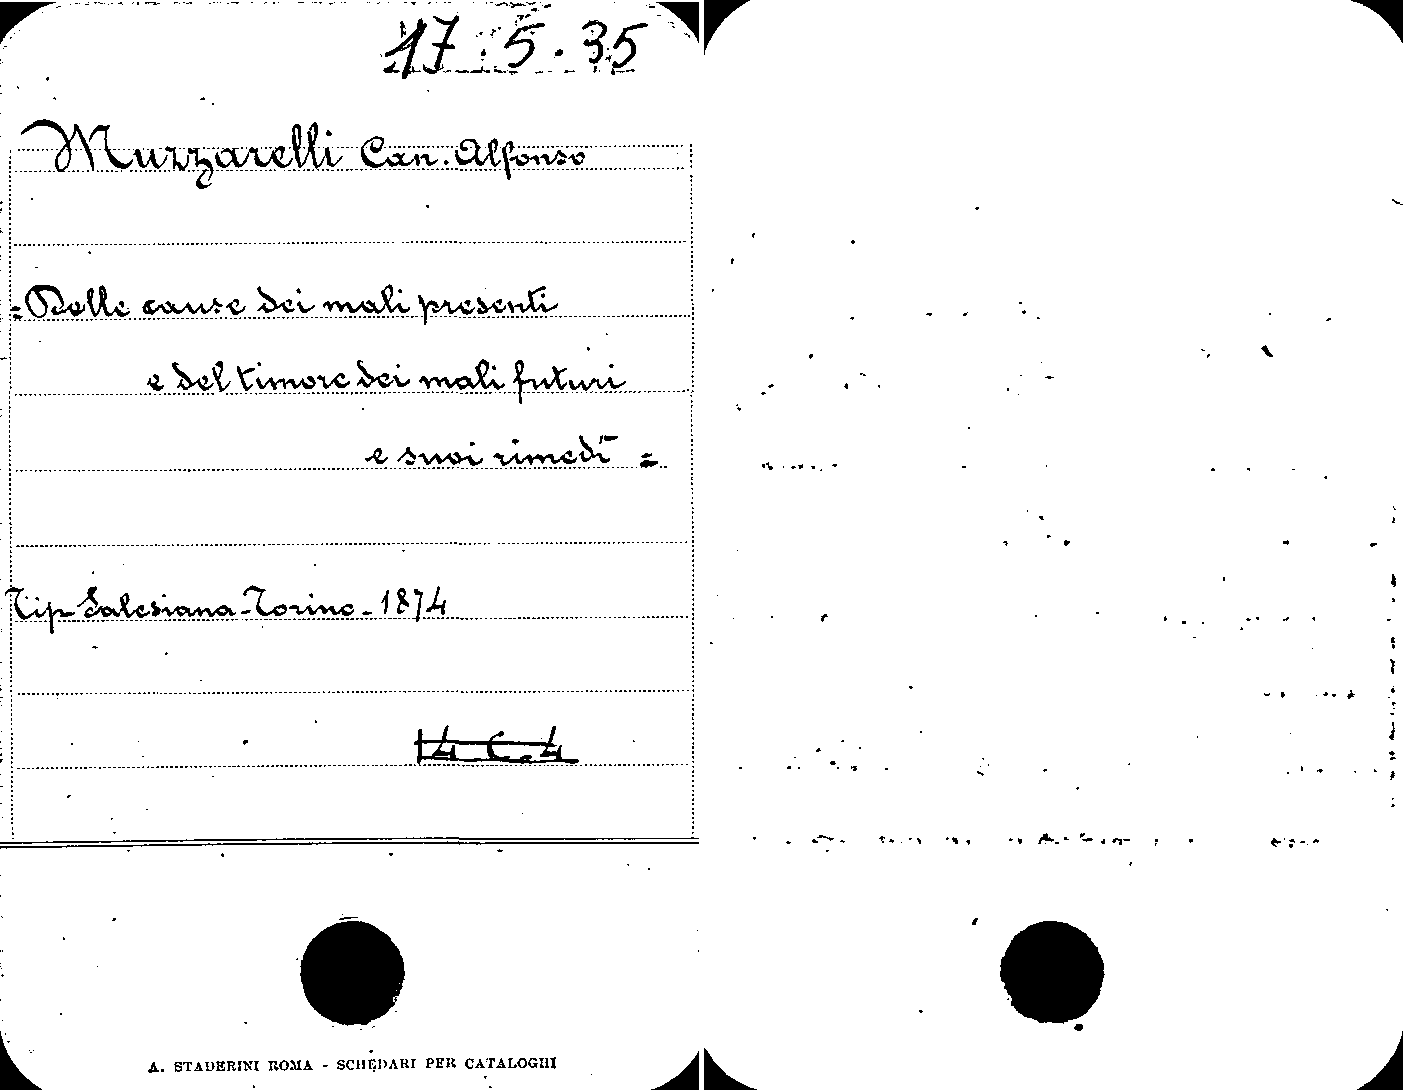 17.5.35
Muzzarelli Can. Alfonso
= Delle cause dei mali presenti
e del timore dei mali futuri
e suoi rimedî =
Tip Salesiana - Torino - 1874
14 C. 4
A. STADERINI ROMA - SCHEDARI PER CATALOGHI